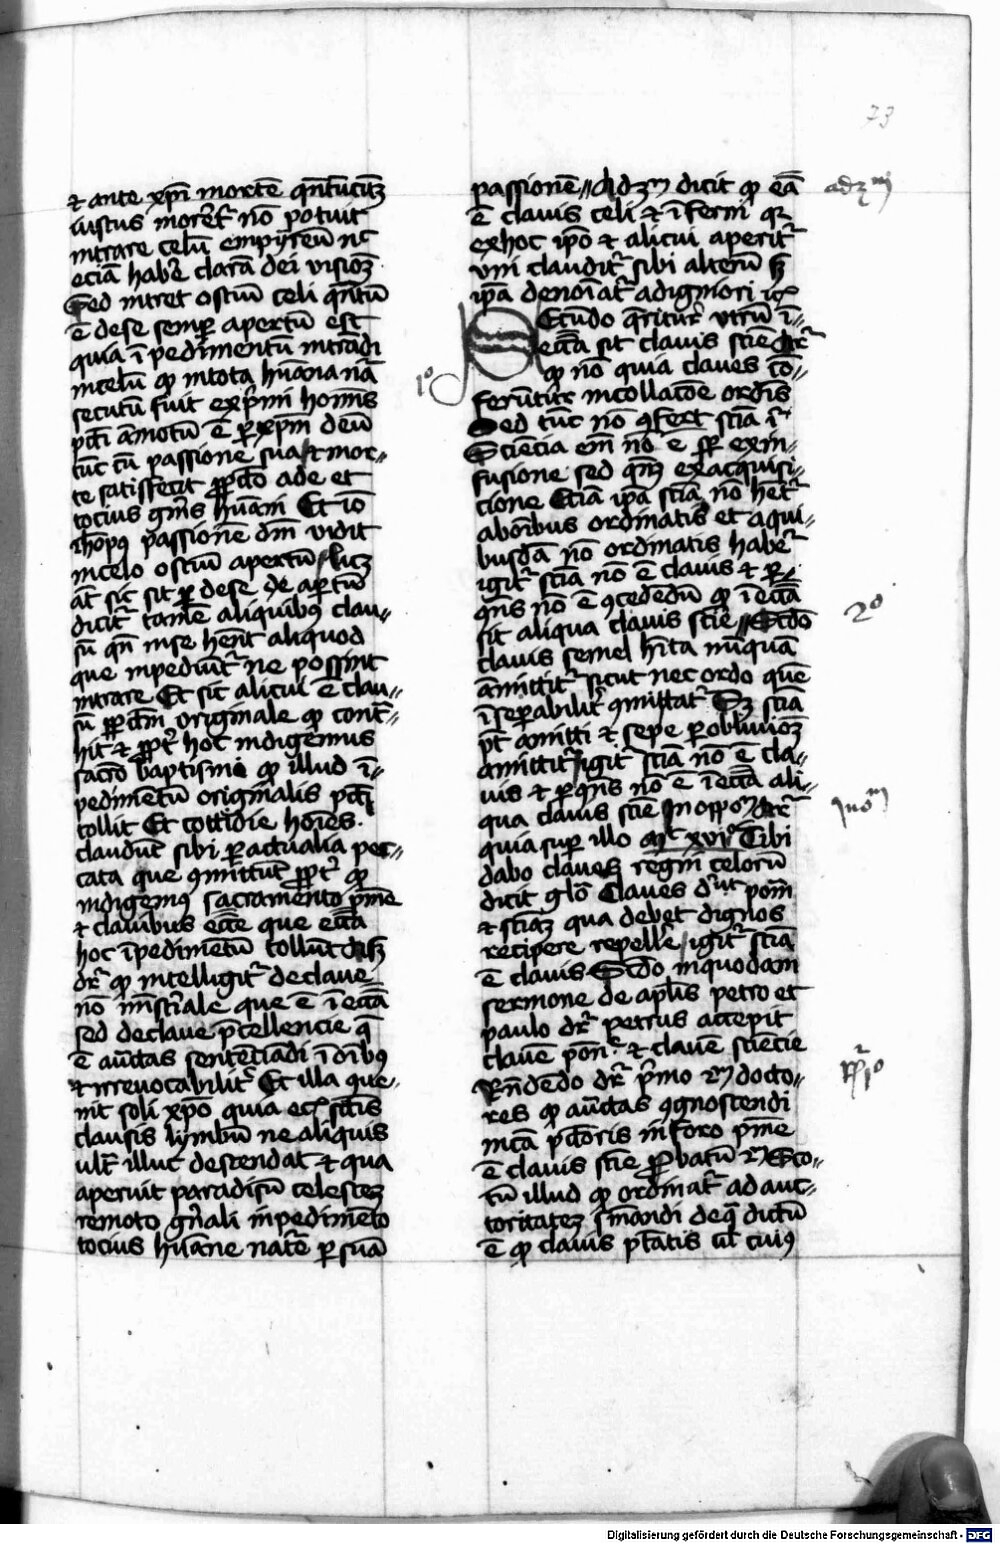 73
⁊ ante xp̄i mortē qn̄tūcūqꝫ
iustus morer̄t̄ᷣ nō potuit
intrare celū empyreū nc̄
eciā hab̄e clarā dei visiōꝫ
Sed intret ostiū celi qn̄tū
ē de se semp̄ apertū est
quia īpedimentū intrādi
in celū qꝫ in tota hūana nā
secutū fuit ex p̄mi hoīnis
pctī āmotū ē ꝑ xp̄m deū
tūc cū passione sua ⁊ mor-
te satisfecit ꝓ pctō ade et
tocius gn̄is hūani Et iō
passionē dm̄ vidit
in celo ostiū apertū licꝫ
at̄ sic sit ꝑ se de se apertū
dicit̄ᷣ tamē aliquibꝰ clau-
sū qn̄ in se hn̄t aliquod
que inpediūt̄ᷣ ne possint
intrare Et sic alicui ē clau-
sū ꝓ pctm̄ originale qꝫ cont̄-
hit ⁊ ꝓpt̄ᷣ hoc indigemus
sacrō baptismi qꝫ illud ī-
pedimentū originalis pctī
tollit Et cottidie hoīes
claudūt sibi ꝑ actualia pec-
cata que ꝯmittūt ꝓpt̄ᷣ qꝫ
indigemꝰ sacramento pn̄ie
⁊ clauibus ecctīe que ecctīa
hoc īpedimentū tollūt
dr̄ qꝫ intelligit̄ᷣ de claue
nō mīstriale que ē ī ecctīa
sed de claue p̄cellencie q̄
ē auctas sentēciādi ī oībꝰ
⁊ irreuocabilit̄ᷣ Et illa que-
nit soli xp̄o quia
clausis lymbū ne aliquis
ult̄ illuc descendat ⁊ qua
aperuit paradisū celesteꝫ
remoto gn̄ali inpedimēto
tocius hūane nat̄e ꝑ suā
passionē // Ad 3ᵐ dicit qꝫ eā
ē clauis celi ⁊ īferni qꝛ
ex hoc ip̄o ⁊ alicui aperit̄ᷣ
vni claudit̄ᷣ sibi alterū sꝫ
ip̄a denoīat̄ᷣ a digniori
ad 3ᵐ
Secūdo q̄ritur vtrū ī-
ecctīa sit clauis scīe dr̄
qꝫ nō quia claues cō-
ferūtur in collacōe ordīs
Sed tūc nō ꝯfert̄ scīa
Sciēcia em̄ nō ē sp̄ ex in-
fusione sed qn̄qꝫ ex acquisi-
cione Eciā ip̄a scīa nō het̄ᷣ
ab oībus ordinatis et a qui-
busdā nō ordinatis habet̄ᷣ
igit̄ᷣ scīa nō ē clauis ⁊ ꝑ
ꝯn̄s nō ē ꝯcedēdū qꝫ ī ecctīa
sit aliqua clauis scīe // Scdō
clauis semel hīta nūquā
āmittit̄ᷣ sicut nec ordo quē
īseꝑabilit̄ᷣ ꝯmittat̄ᷣ Sꝫ scīa
pt̄ amitti ⁊ sepe ꝑ obliuiōꝫ
amittit̄ᷣ igit̄ᷣ scīa nō ē cla-
uis ⁊ ꝑ ꝯn̄s nō ē ī ecctīa ali-
qua clauis scīe In oppoᵐ dr̄
quia sup̄ illo Mᵗ xviº Tibi
dabo claues regni celorū
dicit glō Claues potn̄
⁊ sciāꝫ qua debet dignos
recipere repelle igit̄ᷣ scīa
ē clauis Scdō in quodam
sermone de apl̄is petro et
paulo dr̄ petrus accepit
clauē potn̄ ⁊ clauē sciēcie
Rn̄dendo dr̄ p̄mo doctō-
res qꝫ auctas ꝯgnoscendi
in cā pctōris in foro pn̄ie
ē clauis scīe ꝓbatū Sco-
tū illud qꝫ ordinat̄ᷣ ad auc-
toritateꝫ firmandi de q̄ dictū
ē qꝫ clauis ptātis ul̄ cuiꝰ
1º
2º
In oᵐ
Rº 1º
Digitalisierung gefördert durch die Deutsche Forschungsgemeinschaft - DFG